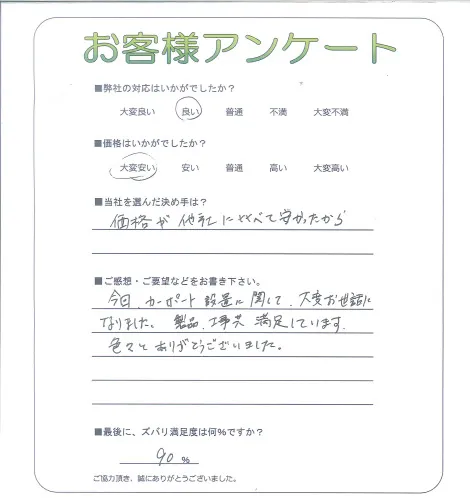 お客様アンケート
■弊社の対応はいかがでしたか?
大変良い 良い 普通 不満 大変不満
■価格はいかがでしたか?
大変安い 安い 普通 高い 大変高い
■当社を選んだ決め手は?
価格が他社に比べて安かったから
■ご感想・ご要望などをお書き下さい。
今回、カーポート設置に関して、大変お世話に
なりました。製品、工事共満足しています。
色々とありがとうございました。
■最後に、ズバリ満足度は何%ですか?
90 %
ご協力頂き、誠にありがとうございました。